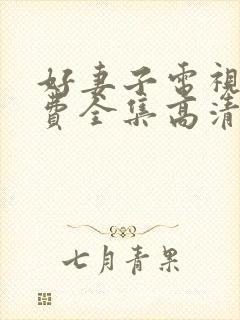 好妻子電視
費全集高清
七月青果